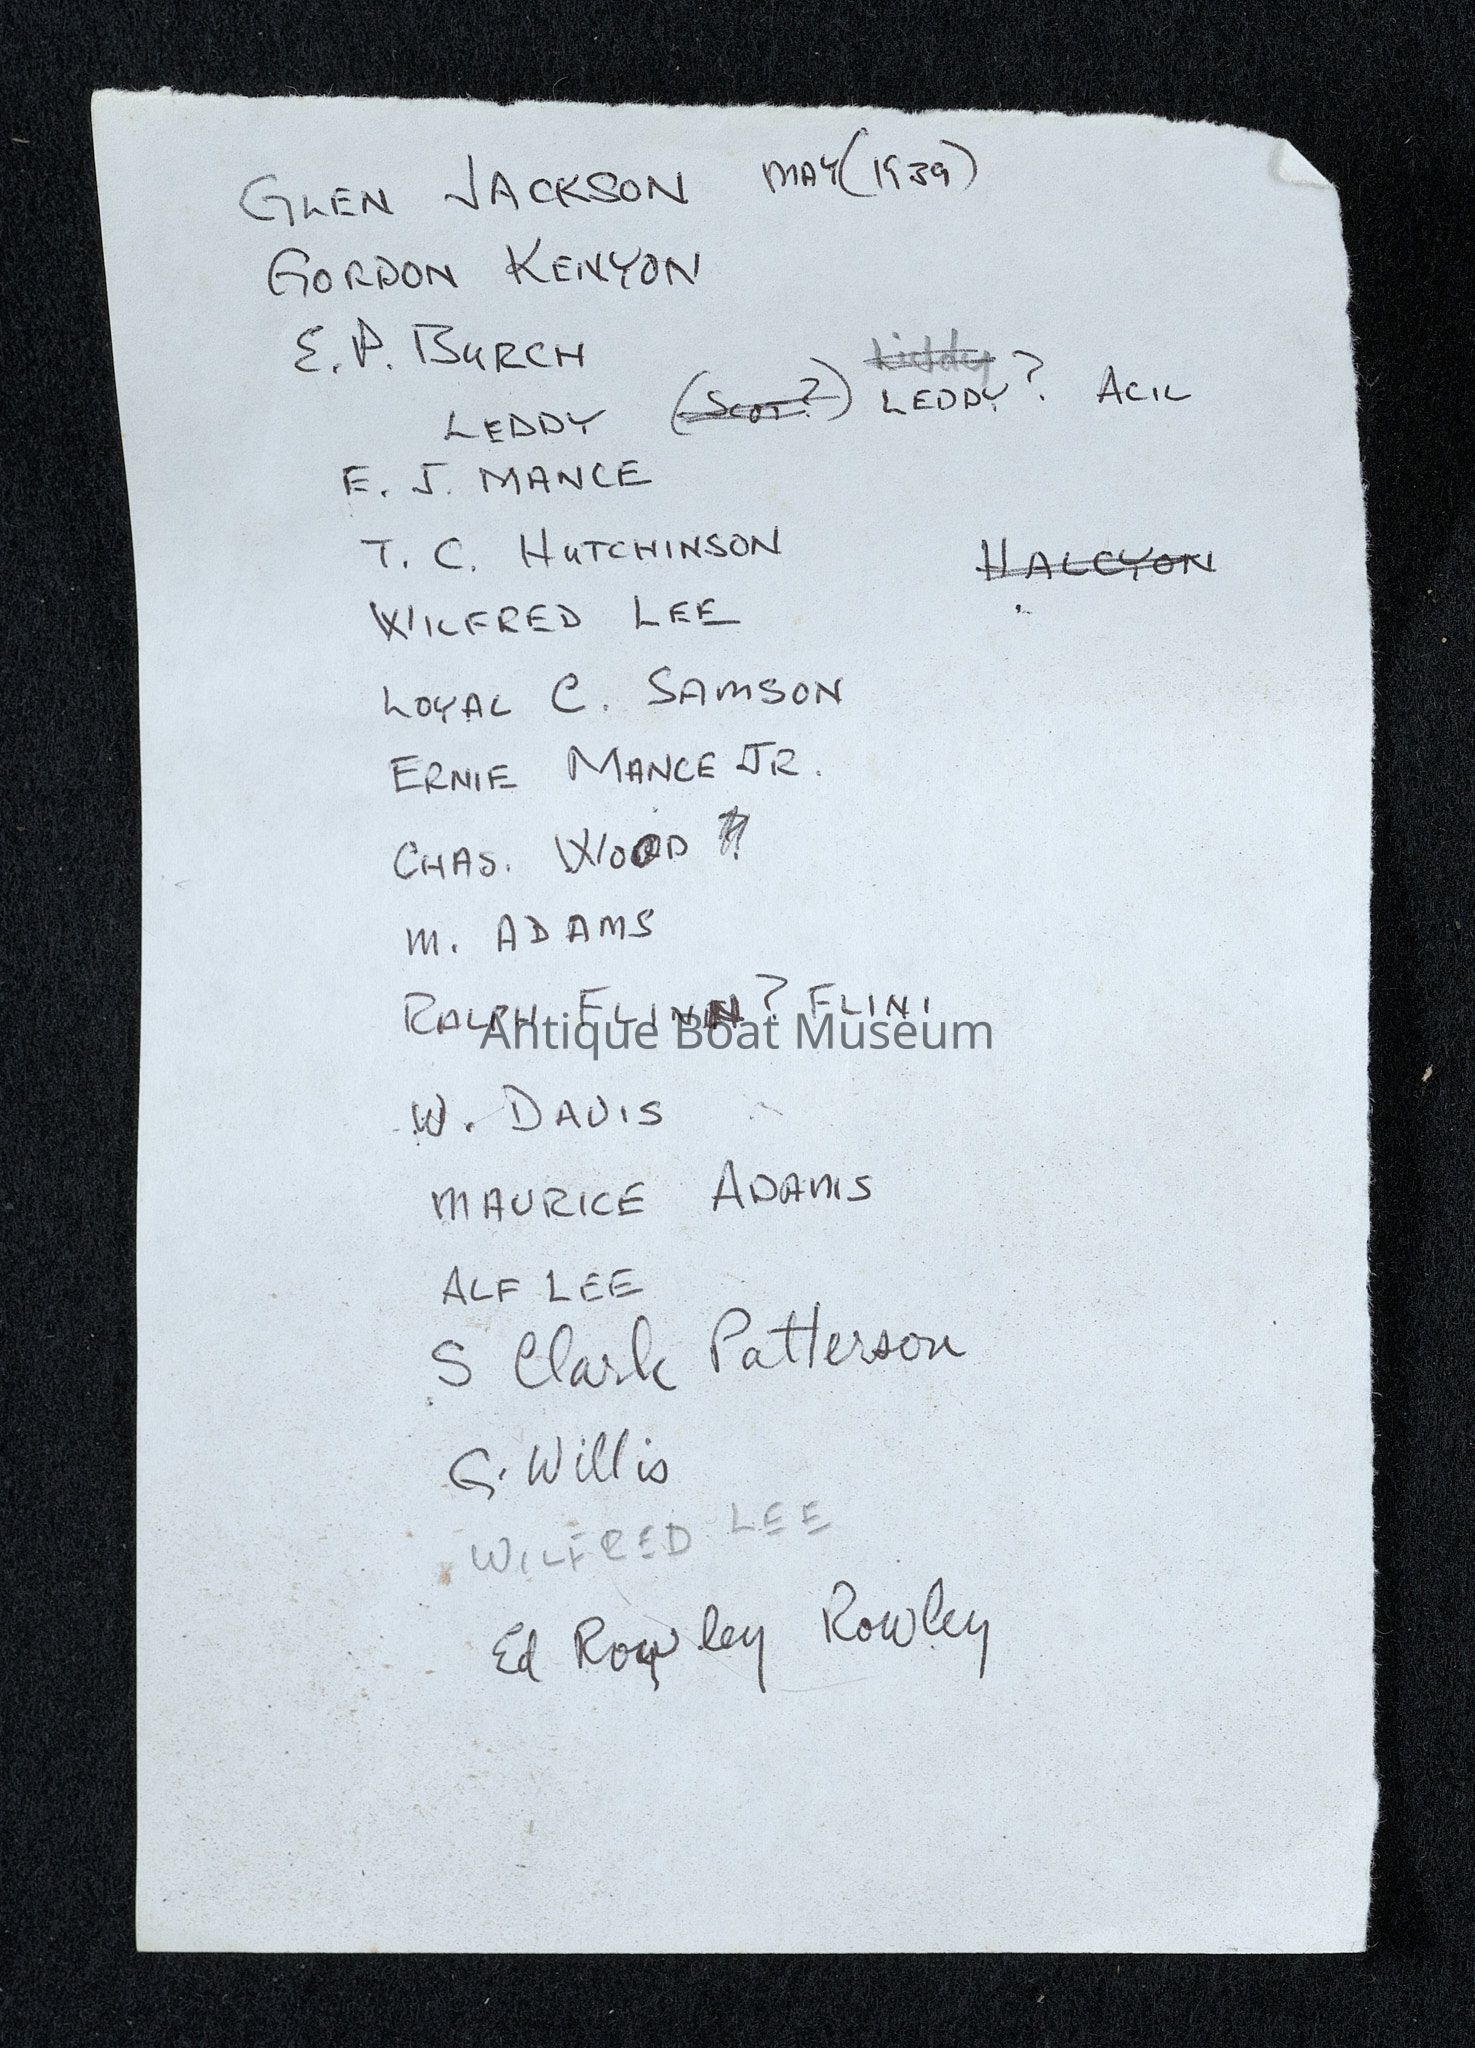 GLEN JACKSON MAY (1939)
GORDON KENYON
E. P. BURCH
LEDDY (Scot?) Liddy LEDDY? ACIL
E. J. MANCE
T. C. HUTCHINSON
HALCYON
WILFRED LEE
LOYAL C. SAMSON
ERNIE MANCE JR.
CHAS. WOOD ?
M. ADAMS
RALPH FLINN? FLINI
Antique Boat Museum
W. DAVIS
MAURICE ADAMS
ALF LEE
S Clark Patterson
G. Willis
WILFRED LEE
Ed Rowley Rowley